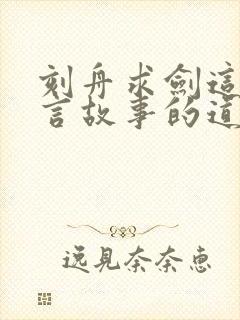 刻舟求劍這
言故事的道
逸見奈奈惠